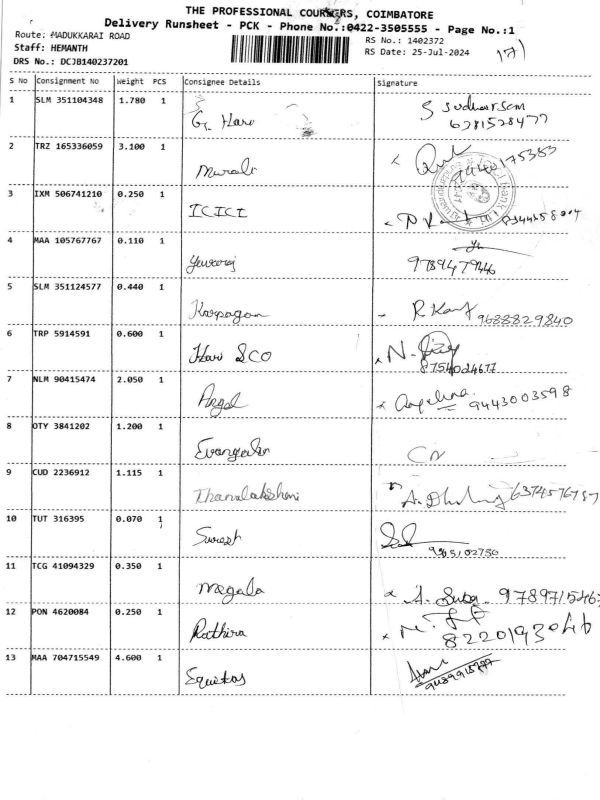 THE PROFESSIONAL COURIERS, COIMBATORE
Delivery Runsheet - PCK - Phone No.:0422-3505555 - Page No.:1
Route: MADUKKARAI ROAD
RS No.: 1402372
Staff: HEMANTH
RS Date: 25-Jul-2024
17)
DRS No.: DCJB140237201
S No Consignment No Weight PCS Consignee Details Signature
1 SLM 351104348 1.780 1 G. Hari
6281528477
2 TRZ 165336059 3.100 1 Murali
3 IXM 506741210 0.250 1 ICICI
4 MAA 105767767 0.110 1 Yuvaraj
5 SLM 351124577 0.440 1 Karpagam 9688829840
6 TRP 5914591 0.600 1 Hari SCO 8754024677
7 NLM 90415474 2.050 1 Angel Angelina 9443003598
8 OTY 3841202 1.200 1 CN
9 CUD 2236912 1.115 1 Thanalakshmi 6374576787
10 TUT 316395 0.070 1 Suresh
11 TCG 41094329 0.350 1 Megala A. Suba
12 PON 4620084 0.250 1 Rathira 8220193046
13 MAA 704715549 4.600 1 Equitas